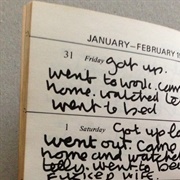 JANUARY–FEBRUARY 19
31 Friday got up.
went to work. came
home. watched te
went to bed
1 Saturday Got up la
went out. came
home and watched
telly. went to bed